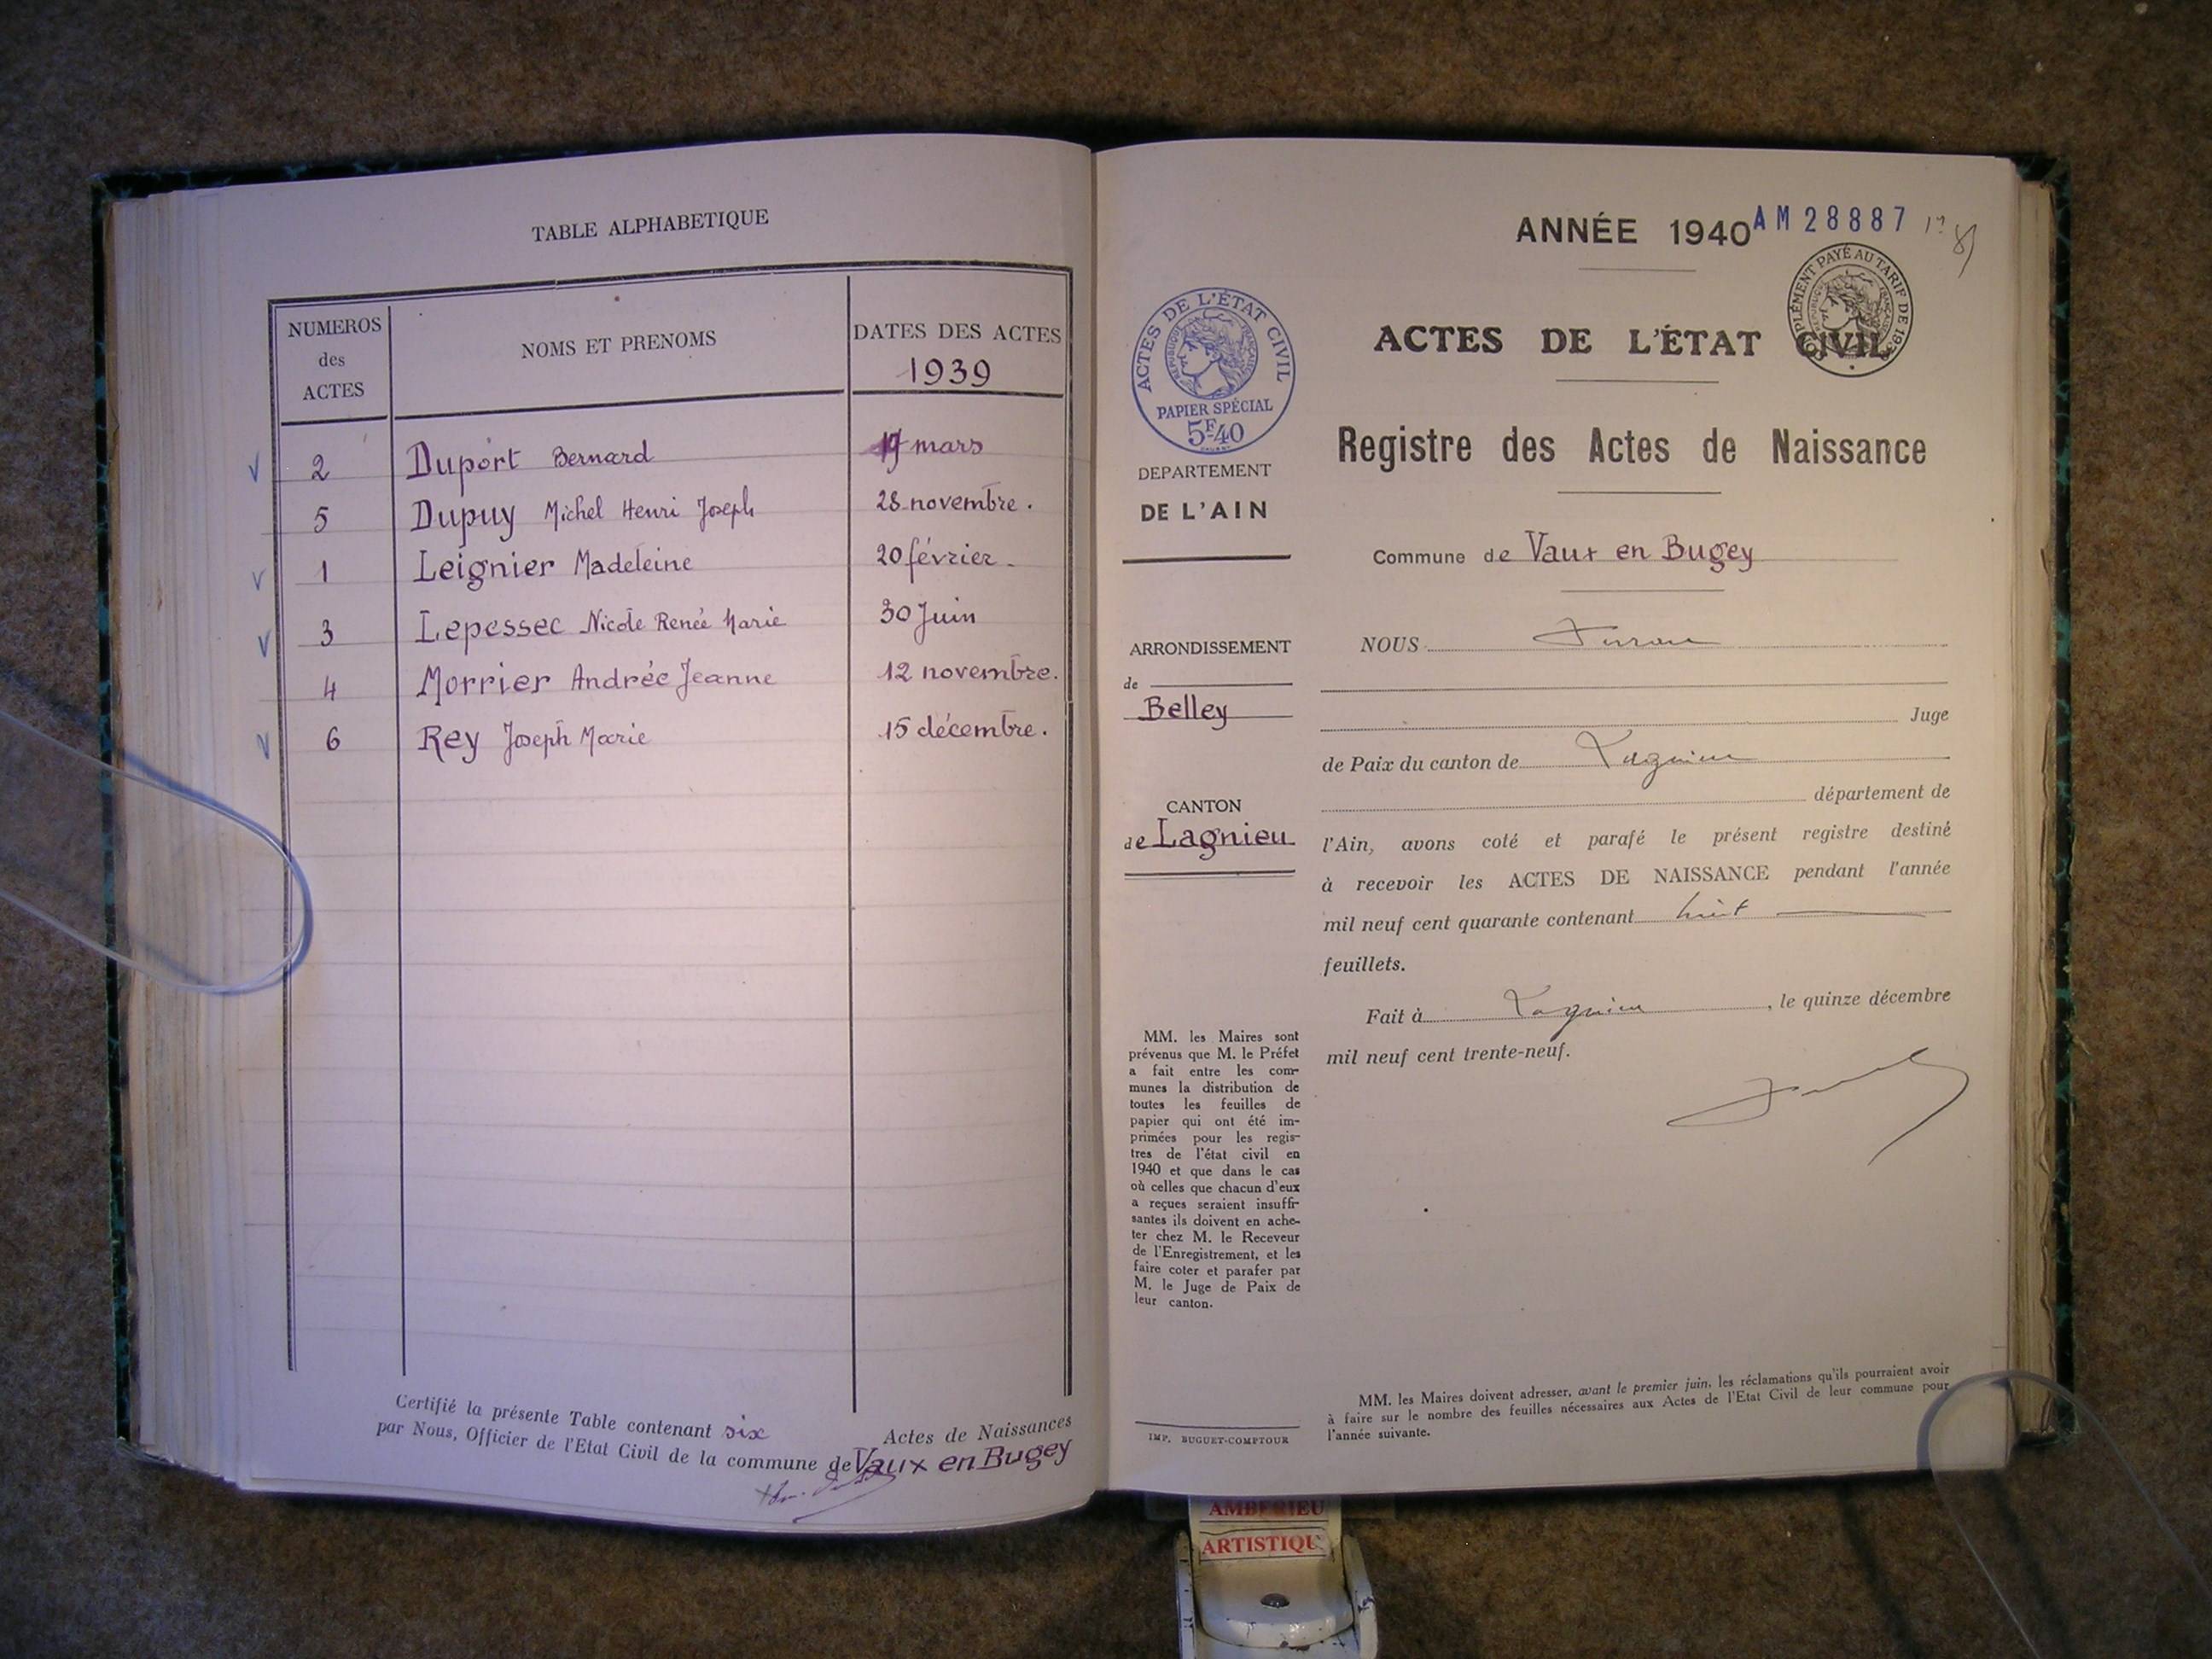 TABLE ALPHABETIQUE
NUMEROS
des
ACTES
NOMS ET PRENOMS
DATES DES ACTES
1939
2 Duport Bernard mars
5 Dupuy Michel Henri Joseph 28 novembre.
1 Leignier Madeleine 20 février.
3 Lepessec Nicole Renée Marie 30 Juin
4 Morrier Andrée Jeanne 12 novembre.
6 Rey Joseph Marie 15 décembre.
Certifié la présente Table contenant six Actes de Naissances
par Nous, Officier de l'Etat Civil de la commune de Vaux en Bugey
ANNÉE 1940 AM 28887
ACTES DE L'ÉTAT CIVIL
PAYÉ AU TARIF DE
ACTES DE L'ÉTAT CIVIL
RÉPUBLIQUE FRANÇAISE
PAPIER SPÉCIAL
5F40
DEPARTEMENT
DE L'AIN
ARRONDISSEMENT
de
Belley
CANTON
de Lagnieu
MM. les Maires sont
prévenus que M. le Préfet
a fait entre les com-
munes la distribution de
toutes les feuilles de
papier qui ont été im-
primées pour les regis-
tres de l'état civil en
1940 et que dans le cas
où celles que chacun d'eux
a reçues seraient insuffi-
santes ils doivent en ache-
ter chez M. le Receveur
de l'Enregistrement, et les
faire coter et parafer par
M. le Juge de Paix de
leur canton.
IMP. BUGUET-COMPTOUR
Registre des Actes de Naissance
Commune de Vaux en Bugey
NOUS
Juge
de Paix du canton de Lagnieu
département de
l'Ain, avons coté et parafé le présent registre destiné
à recevoir les ACTES DE NAISSANCE pendant l'année
mil neuf cent quarante contenant huit
feuillets.
Fait à Lagnieu, le quinze décembre
mil neuf cent trente-neuf.
MM. les Maires doivent adresser, avant le premier juin, les réclamations qu'ils pourraient avoir
à faire sur le nombre des feuilles nécessaires aux Actes de l'Etat Civil de leur commune pour
l'année suivante.
AMBERIEU
ARTISTIQU